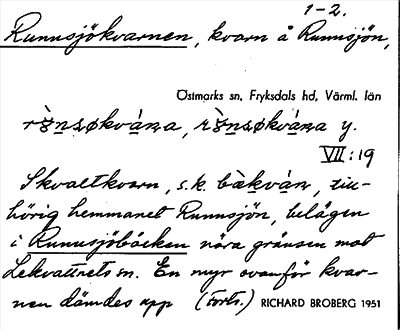 1-2.
Runnsjökvarnen, kvarn å Runnsjön,
Östmarks sn, Fryksdals hd, Värml. län
y.
VII:19
Skvaltkvarn, s.k. bækván, till-
hörig hemmanet Runnsjön, belägen
i Runnsjöbäcken nära gränsen mot
Lekvattnets sn. En myr ovanför kvar-
nen dämdes upp (forts.) RICHARD BROBERG 1951